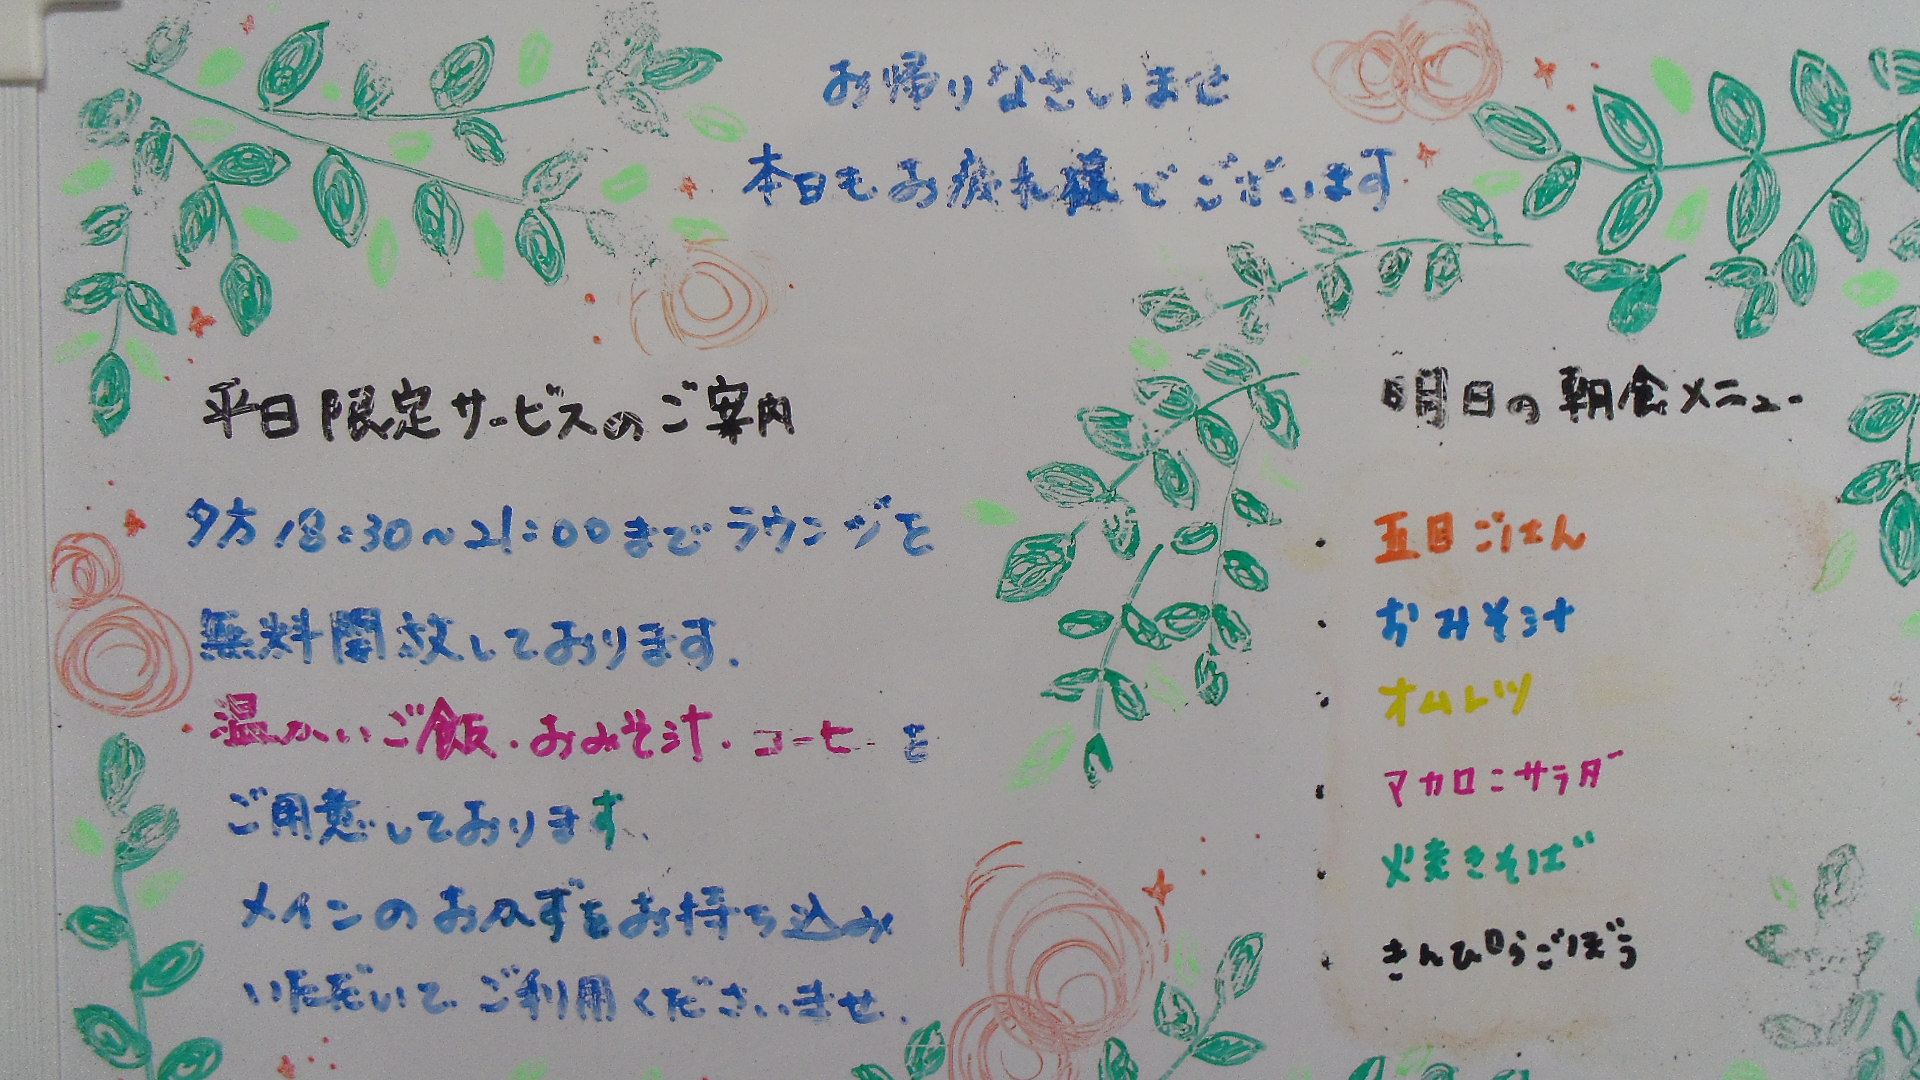 お帰りなさいませ
本日もお疲れ様でございます
平日限定サービスのご案内
夕方18:30~21:00までラウンジを
無料開放しております.
温かいご飯.おみそ汁.コーヒーを
ご用意しております、
メインのおかずをお持ち込み
いただいてご利用くださいませ.
明日の朝食メニュー
・五目ごはん
・おみそ汁
・オムレツ
・マカロニサラダ
・焼きそば
・きんぴらごぼう